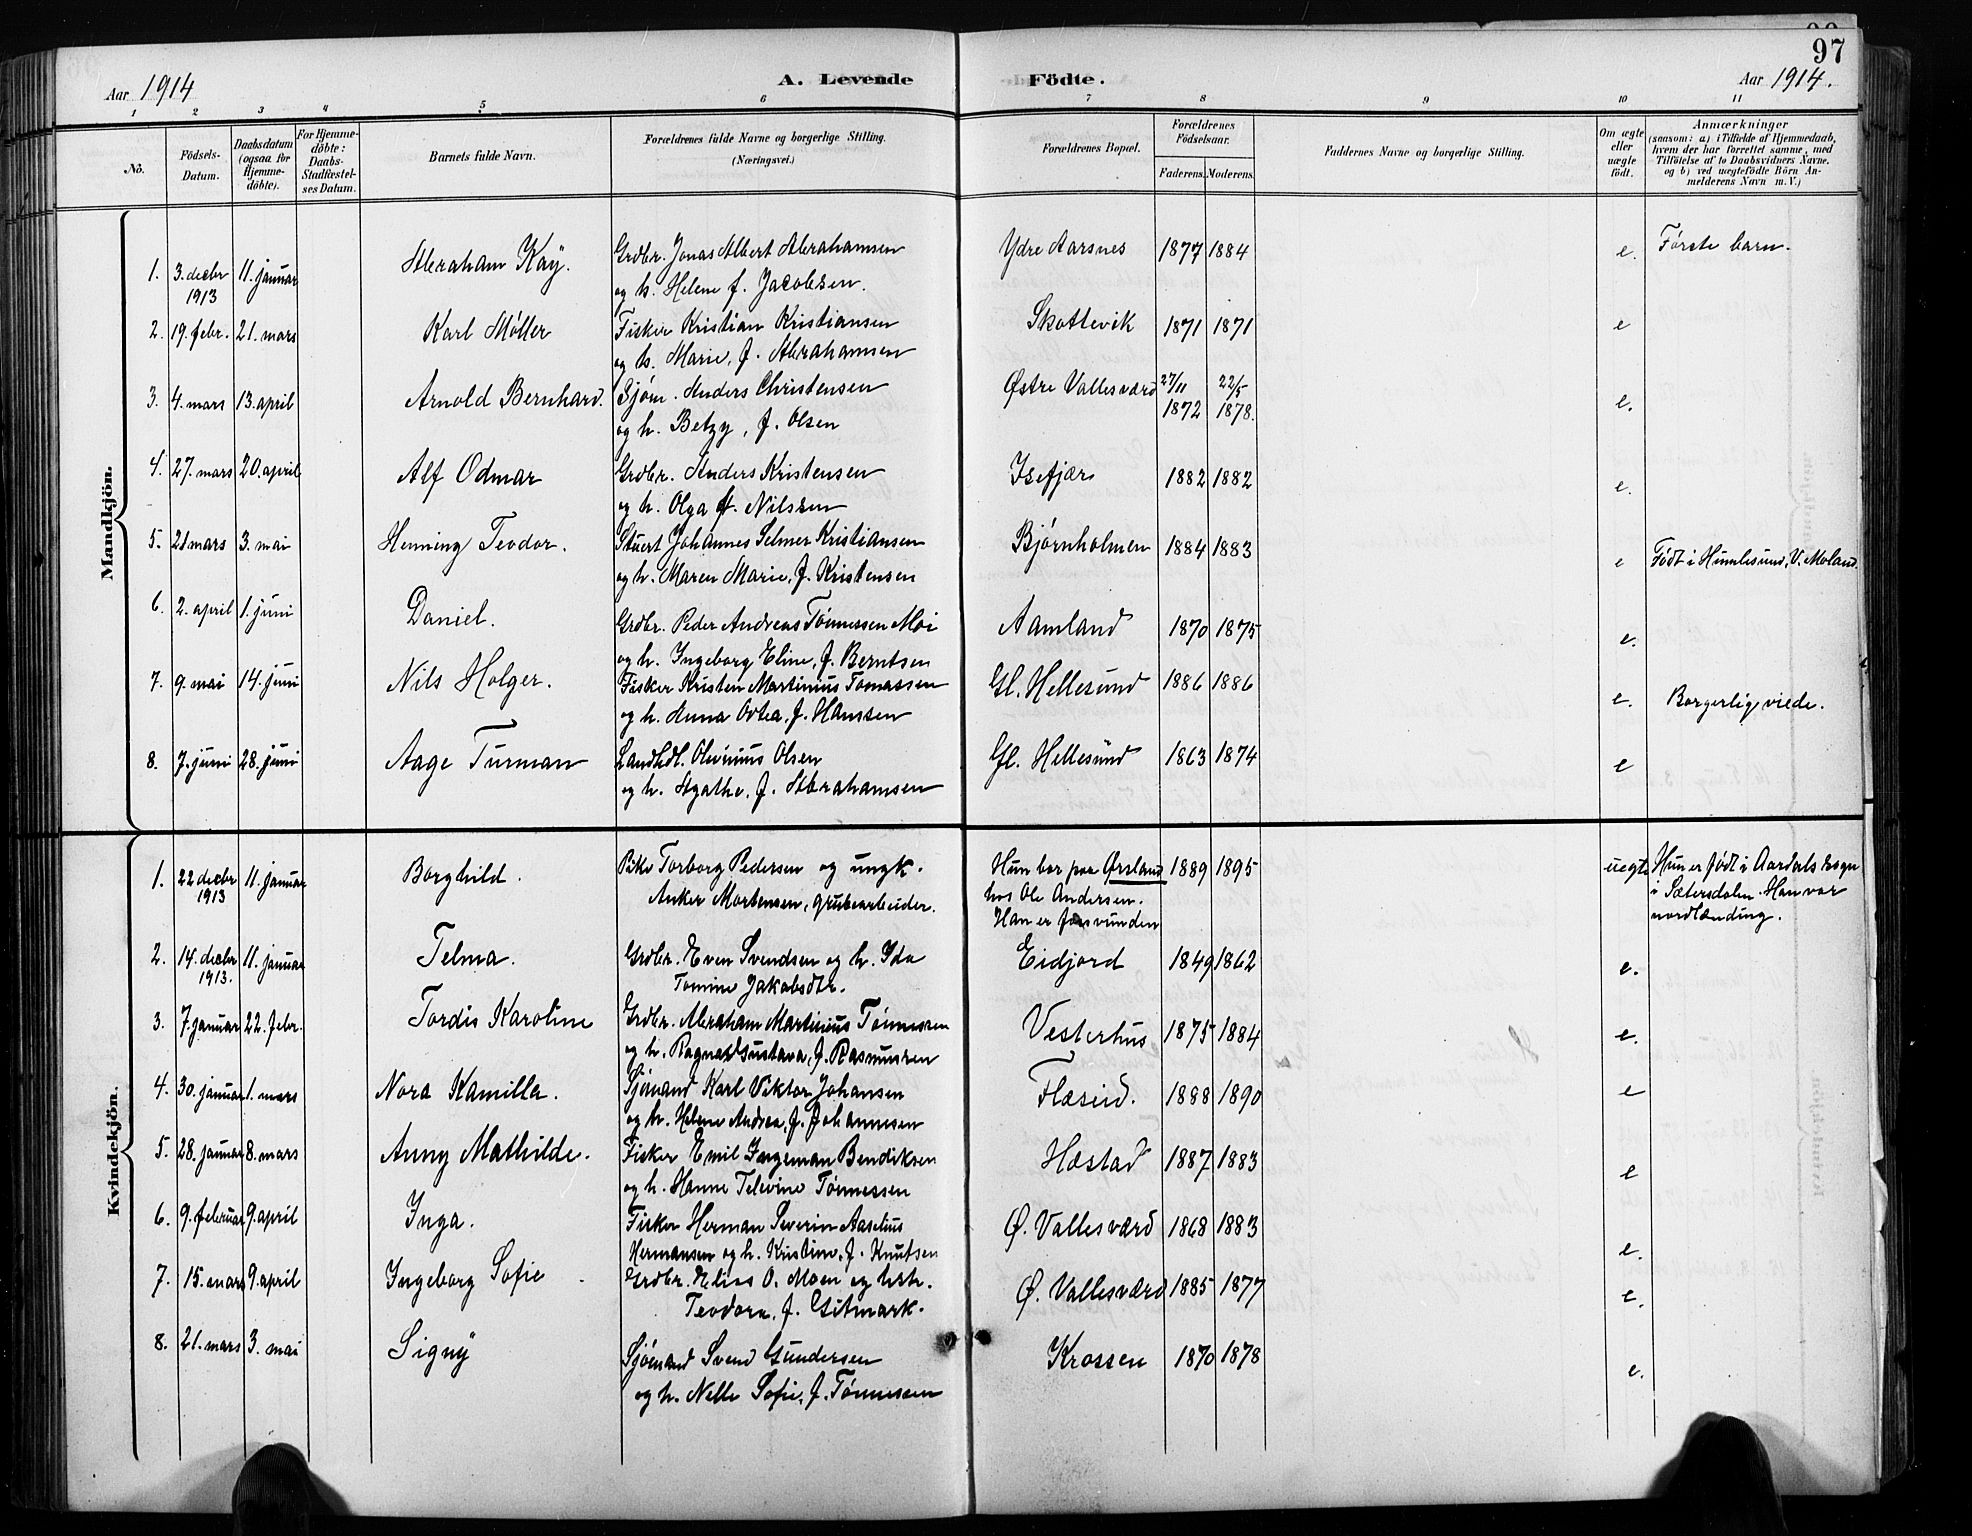 97
Aar 1914
A. Levende
Födte.
Aar 1914.
1 2 3 4 5 6 7 8 9 10 11
No.
Födsels-Datum.
Daabsdatum (ogsaa for Hjemme-döbte).
For Hjemme-döbte: Daabs-Stadfæstel-ses Datum.
Barnets fulde Navn.
Forældrenes fulde Navne og borgerlige Stilling. (Næringsvei.)
Forældrenes Bopæl.
Forældrenes Födselsaar.
Faderens. Moderens.
Faddernes Navne og borgerlige Stilling.
Om ægte eller uægte födt.
Anmærkninger
(saasom: a) i Tilfælde af Hjemmedaab, hvem der har forrettet samme, med Tilföielse af to Daabsvidners Navne, og b) ved uægtefödte Börn An-melderens Navn m. V.)
Mandkjön.
1. 3. decbr 11. januar Abraham Kaÿ. Grdbr. Jonas Albert Abrahamsen Ydre Aarsnes 1877 1884 e. Første barn.
1913 og h. Helene f. Jacobsen.
2. 19. febr. 21. mars Karl Møller Fisker Kristian Kristiansen Skottevik 1871 1871 e
og h. Marie, f. Abrahamsen
3. 4. mars 13. april Arnold Bernhard. Sjøm. Anders Christensen Østre Vallesværd 27/11 1872 22/5 1878. e.
og h. Betzy, f. Olsen
4. 27. mars 20. april Alf Odmar Grdbr. Anders Kristensen Isefjær 1882 1882 e.
og h. Olga f. Nilssen
5. 21 mars 3. mai Henning Teodor. Stuert Johannes Selmer Kristiansen Bjørnholmen 1884 1883 e Født i Humlesund, V. Moland.
og h. Maren Marie, f. Kristensen
6. 2. april 1. juni Daniel. Grdbr. Peder Andreas Tønnessen Moi Aamland 1870 1875 e.
og h. Ingeborg Eline, f. Berntsen
7. 9. mai 14. juni Nils Holger. Fisker Kristen Martinius Tomassen Gl. Hellesund 1886 1886 e. Borgerlig viede.
og h. Anna Ovtea, f. Hanssen
8. 7. juni 28. juni Aage Turman Landhdl. Olevinus Olsen Gl. Hellesund 1863 1874 e
og h. Agathe, f. Abrahamsen
Kvindekjön.
1. 22 decbr 11. januar Borghild. Pike Torborg Pedersen og ungk. Hun bor paa Ørsland 1889 1895 uegte Hun er født i Aardals sogn
1913 Anker Mortensen, grubearbeider. hos Ole Andersen. i Sætersdalen. Han var
Han er forsvunden nordlænding.
2. 14. decbr 11. januar Telma. Grdbr. Even Svendsen og h. Ida Eidjord 1849 1862 e.
1913. Tomine Jakobsdtr.
3. 7. januar 22. febr. Tordis Karoline Grdbr. Abraham Martinius Tønnessen Vesterhus 1875 1884 e.
og h. Ragna Gustava, f. Rasmussen
4. 30. januar 1. mars Nora Kamilla. Sjømand Karl Viktor Johansen Flæsid. 1888 1890 e
og h. Helene Andrea, f. Johannesen
5. 28. januar 8. mars Anny Mathilde. Fisker Emil Ingeman Bendiksen Hæstad 1887 1883 e
og h. Hanne Televine Tønnessen
6. 9. februar 9. april Inga. Fisker Herman Severin Aaselius Ø. Vallesværd 1868 1883 e.
Hermansen og h. Kristine, f. Knutsen
7. 15. mars 9. april Ingeborg Sofie Grdbr. Elias O. Moen og hstr. Ø. Vallesværd 1885 1877 e.
Teodora, f. Gitmark.
8. 21. mars 3. mai Signÿ Sjømand Svend Gundersen Krossen 1870 1878 e.
og h. Nelle Sofie, f. Tønnessen